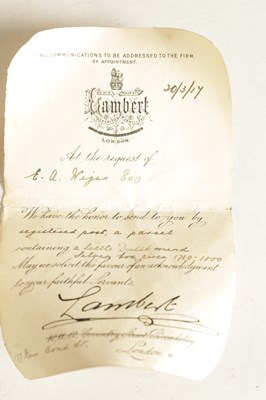 ALL COMMUNICATIONS TO BE ADDRESSED TO THE FIRM
BY APPOINTMENT.
20/3/17
Lambert
LONDON
At the request of
E. A. Esq
We have the honor to send to you by
registered post, a parcel
containing a little Dutch
Silver box circa 1790-1800
May we solicit the favour of an acknowledgment
to your faithful Servants
Lambert
Bond St.
London